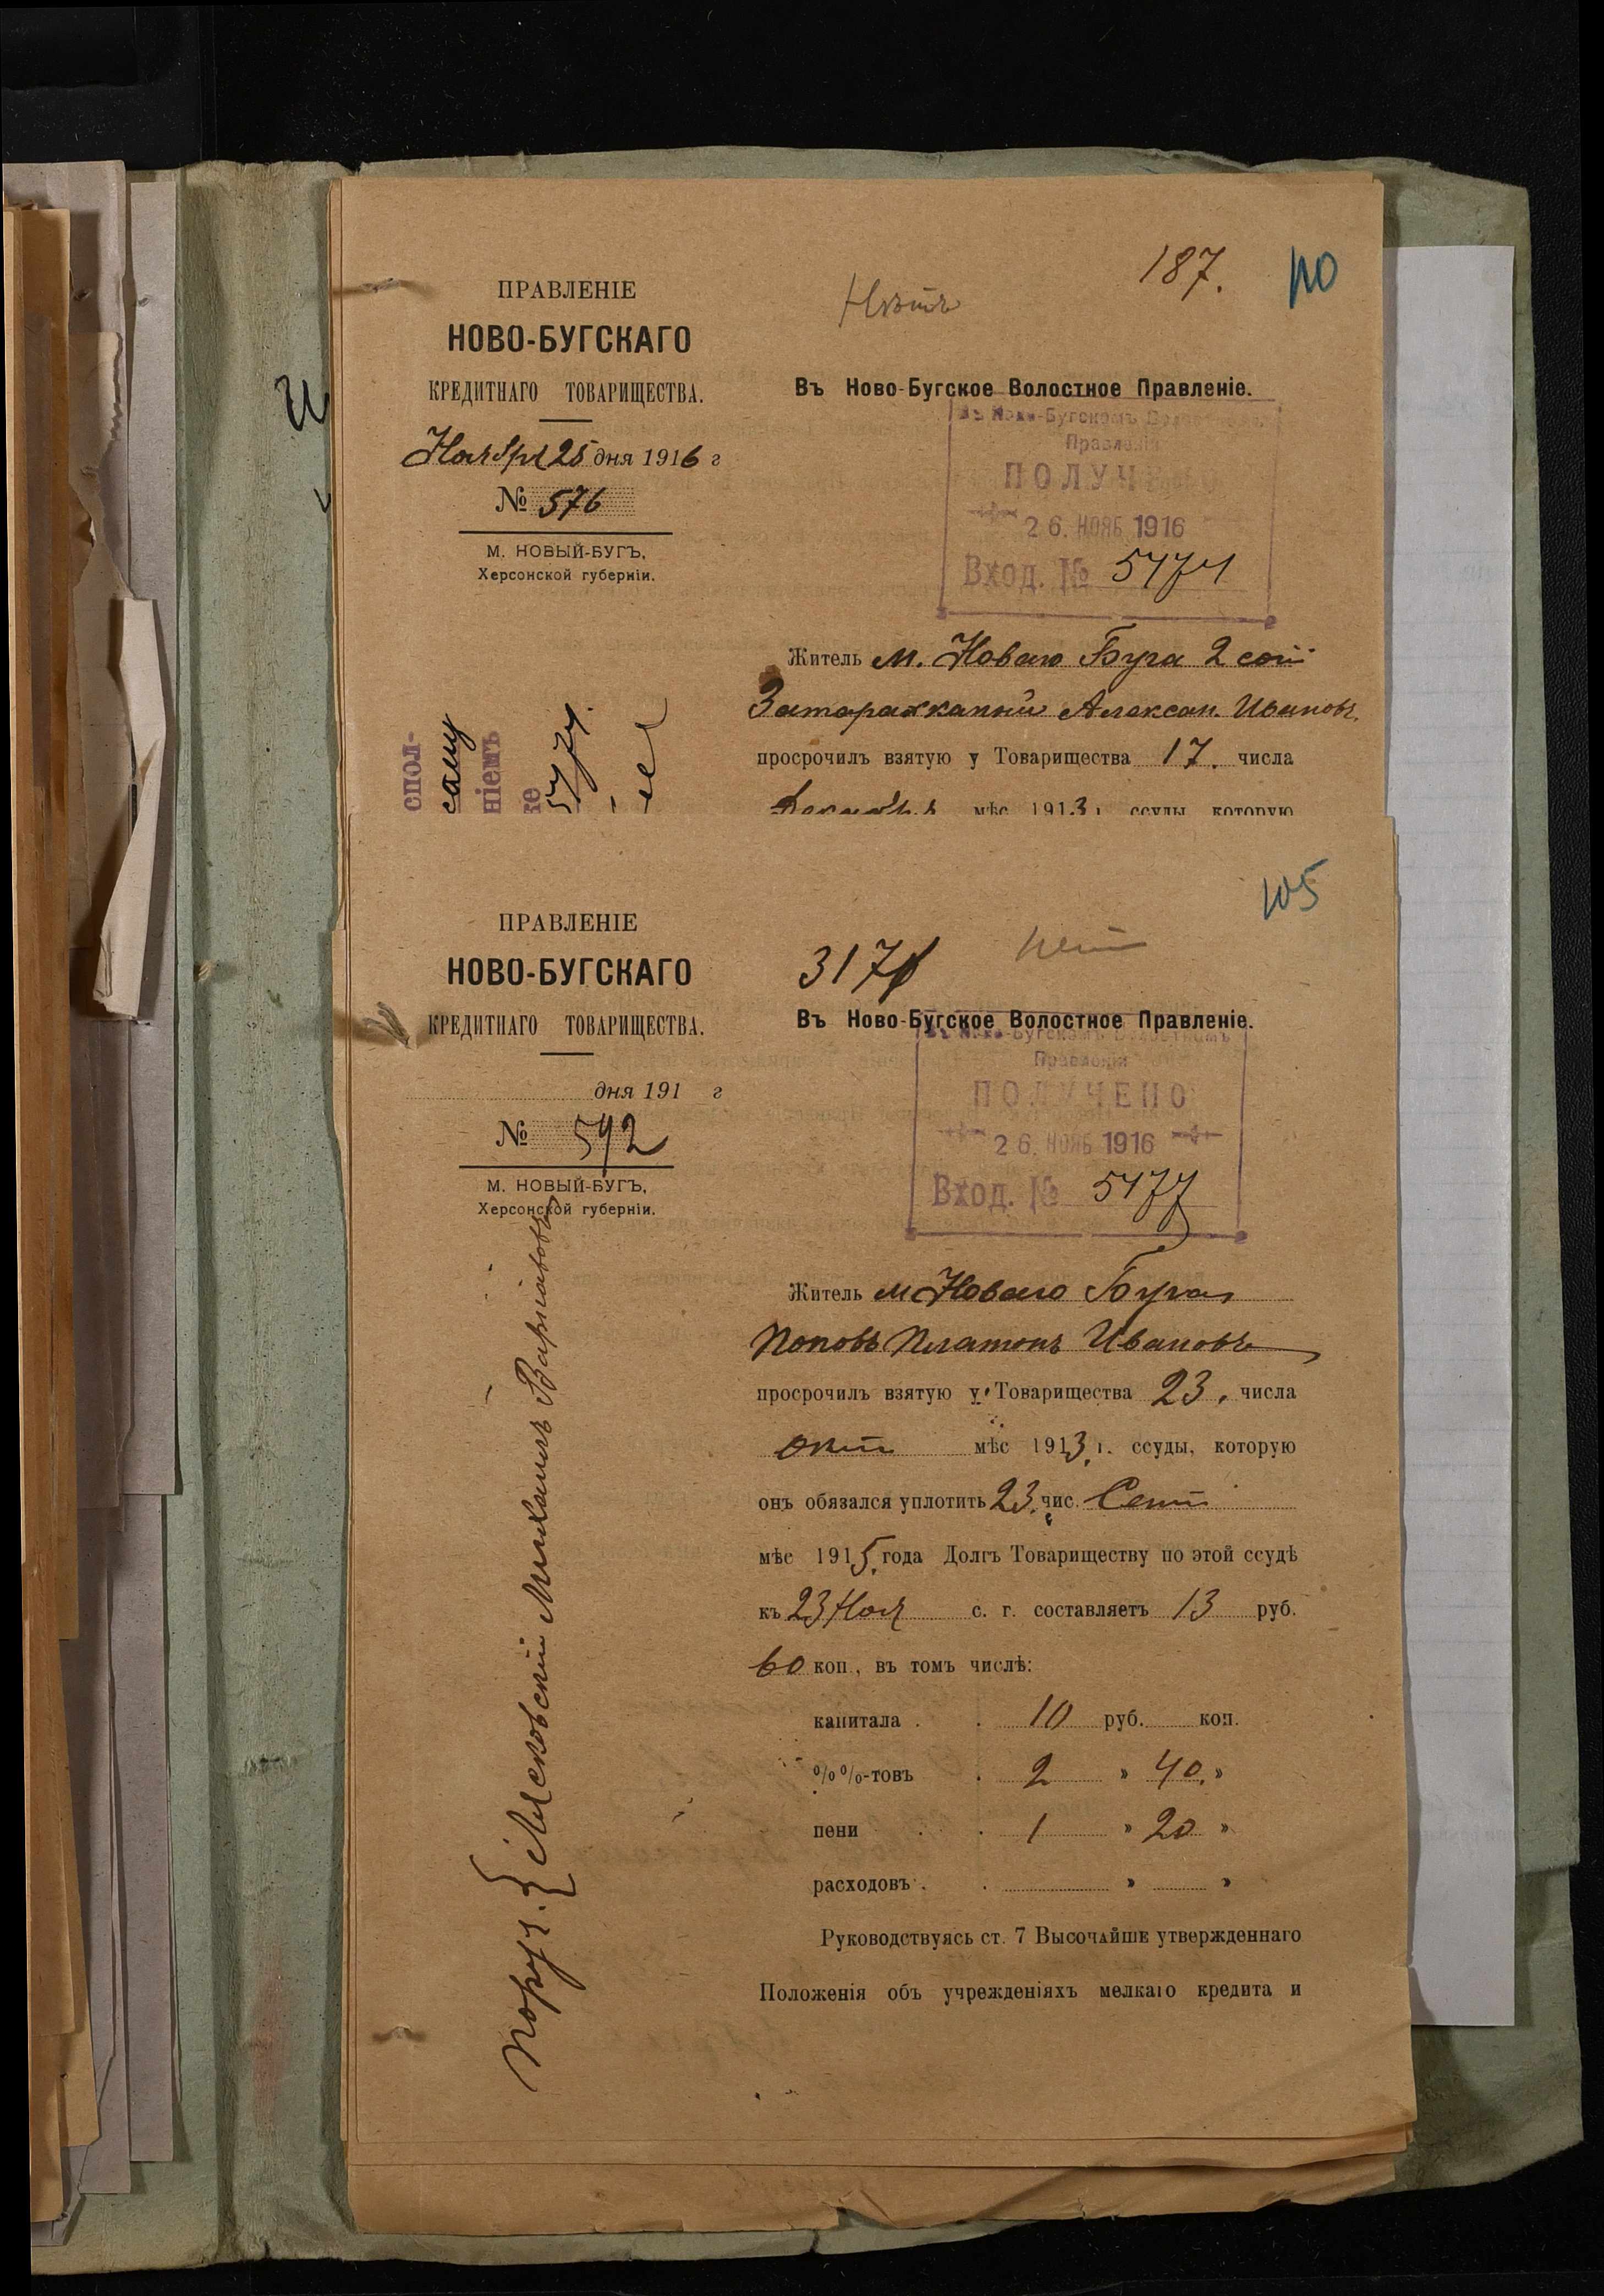 187.
110
Нѣтъ
ПРАВЛЕНІЕ
НОВО-БУГСКАГО
КРЕДИТНАГО ТОВАРИЩЕСТВА.
Ноября 25 дня 1916 г
№ 576
М. НОВЫЙ-БУГЪ,
Херсонской губерніи.
Въ Ново-Бугское Волостное Правленіе.
Въ Ново-Бугскомъ Волостномъ
Правленіи
ПОЛУЧЕНО
26. НОЯБ 1916
Вход. № 5474
Житель М. Новаго Буга 2 сот
Александ. Ивановъ
просрочилъ взятую у Товарищества 17. числа
Декабря мѣс 1913 г ссуды которую
спол-
саму
ніемъ
5474.
105
ПРАВЛЕНІЕ
НОВО-БУГСКАГО
КРЕДИТНАГО ТОВАРИЩЕСТВА.
дня 191 г
№ 592
М. НОВЫЙ-БУГЪ,
Херсонской губерніи.
317
нѣт
Въ Ново-Бугское Волостное Правленіе.
Въ Ново-Бугскомъ Волостномъ
Правленіи
ПОЛУЧЕНО
26. НОЯБ 1916
Вход. № 5477
Житель м Новаго Буга
Поповъ Платонъ Ивановъ
просрочилъ взятую у Товарищества 23. числа
окт мѣс 1913 г. ссуды, которую
онъ обязался уплотить 23 чис. Сент
мѣс 1915 года Долгъ Товариществу по этой ссудѣ
къ 23 Ноя с. г. составляетъ 13 руб.
60 коп., въ томъ числѣ:
капитала . . 10 руб. коп.
%%-товъ . 2 » 40. »
пени . . 1 » 20 »
расходовъ . . » »
Руководствуясь ст. 7 Высочайше утвержденнаго
Положенія объ учрежденіяхъ мелкаго кредита и
Поруч. { Михаилъ